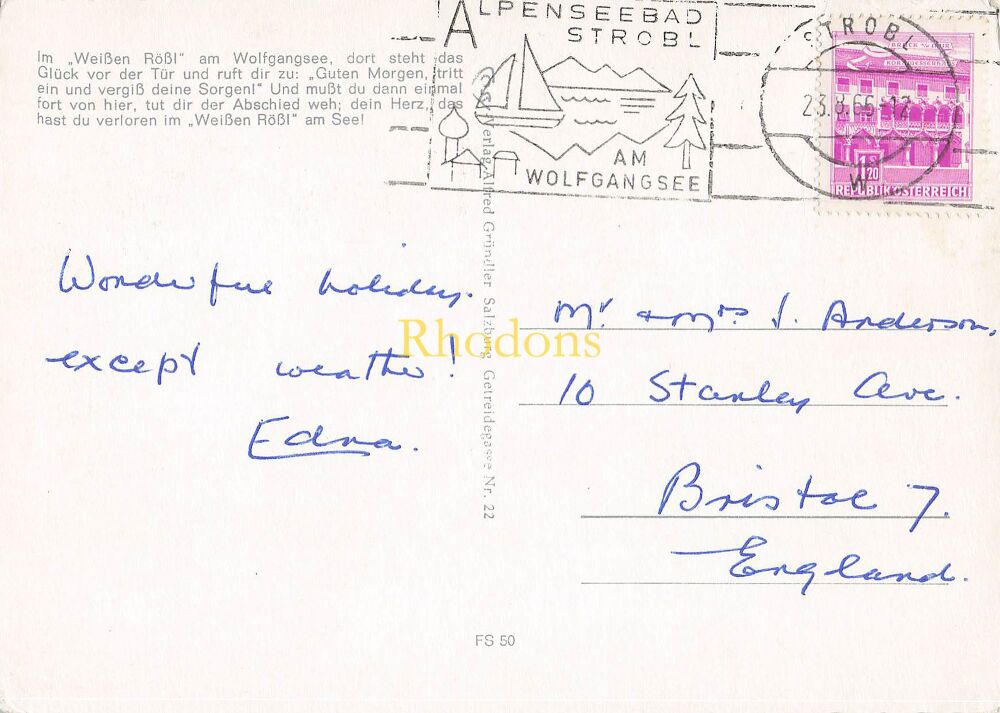 Im „Weißen Rößl“ am Wolfgangsee, dort steht das
Glück vor der Tür und ruft dir zu: „Guten Morgen, tritt
ein und vergiß deine Sorgen!“ Und mußt du dann einmal
fort von hier, tut dir der Abschied weh; dein Herz, das
hast du verloren im „Weißen Rößl“ am See!
ALPENSEEBAD
STROBL
AM
WOLFGANGSEE
STROBL
23.8.66-12
1.20
REPUBLIK ÖSTERREICH
Wonderful holiday.
except weather!
Edna.
Verlag Alfred Gründler Salzburg Getreidegasse Nr. 22
Mr. & Mrs J. Anderson,
10 Stanley Ave.
Bristol 7.
England.
Rhodons
FS 50